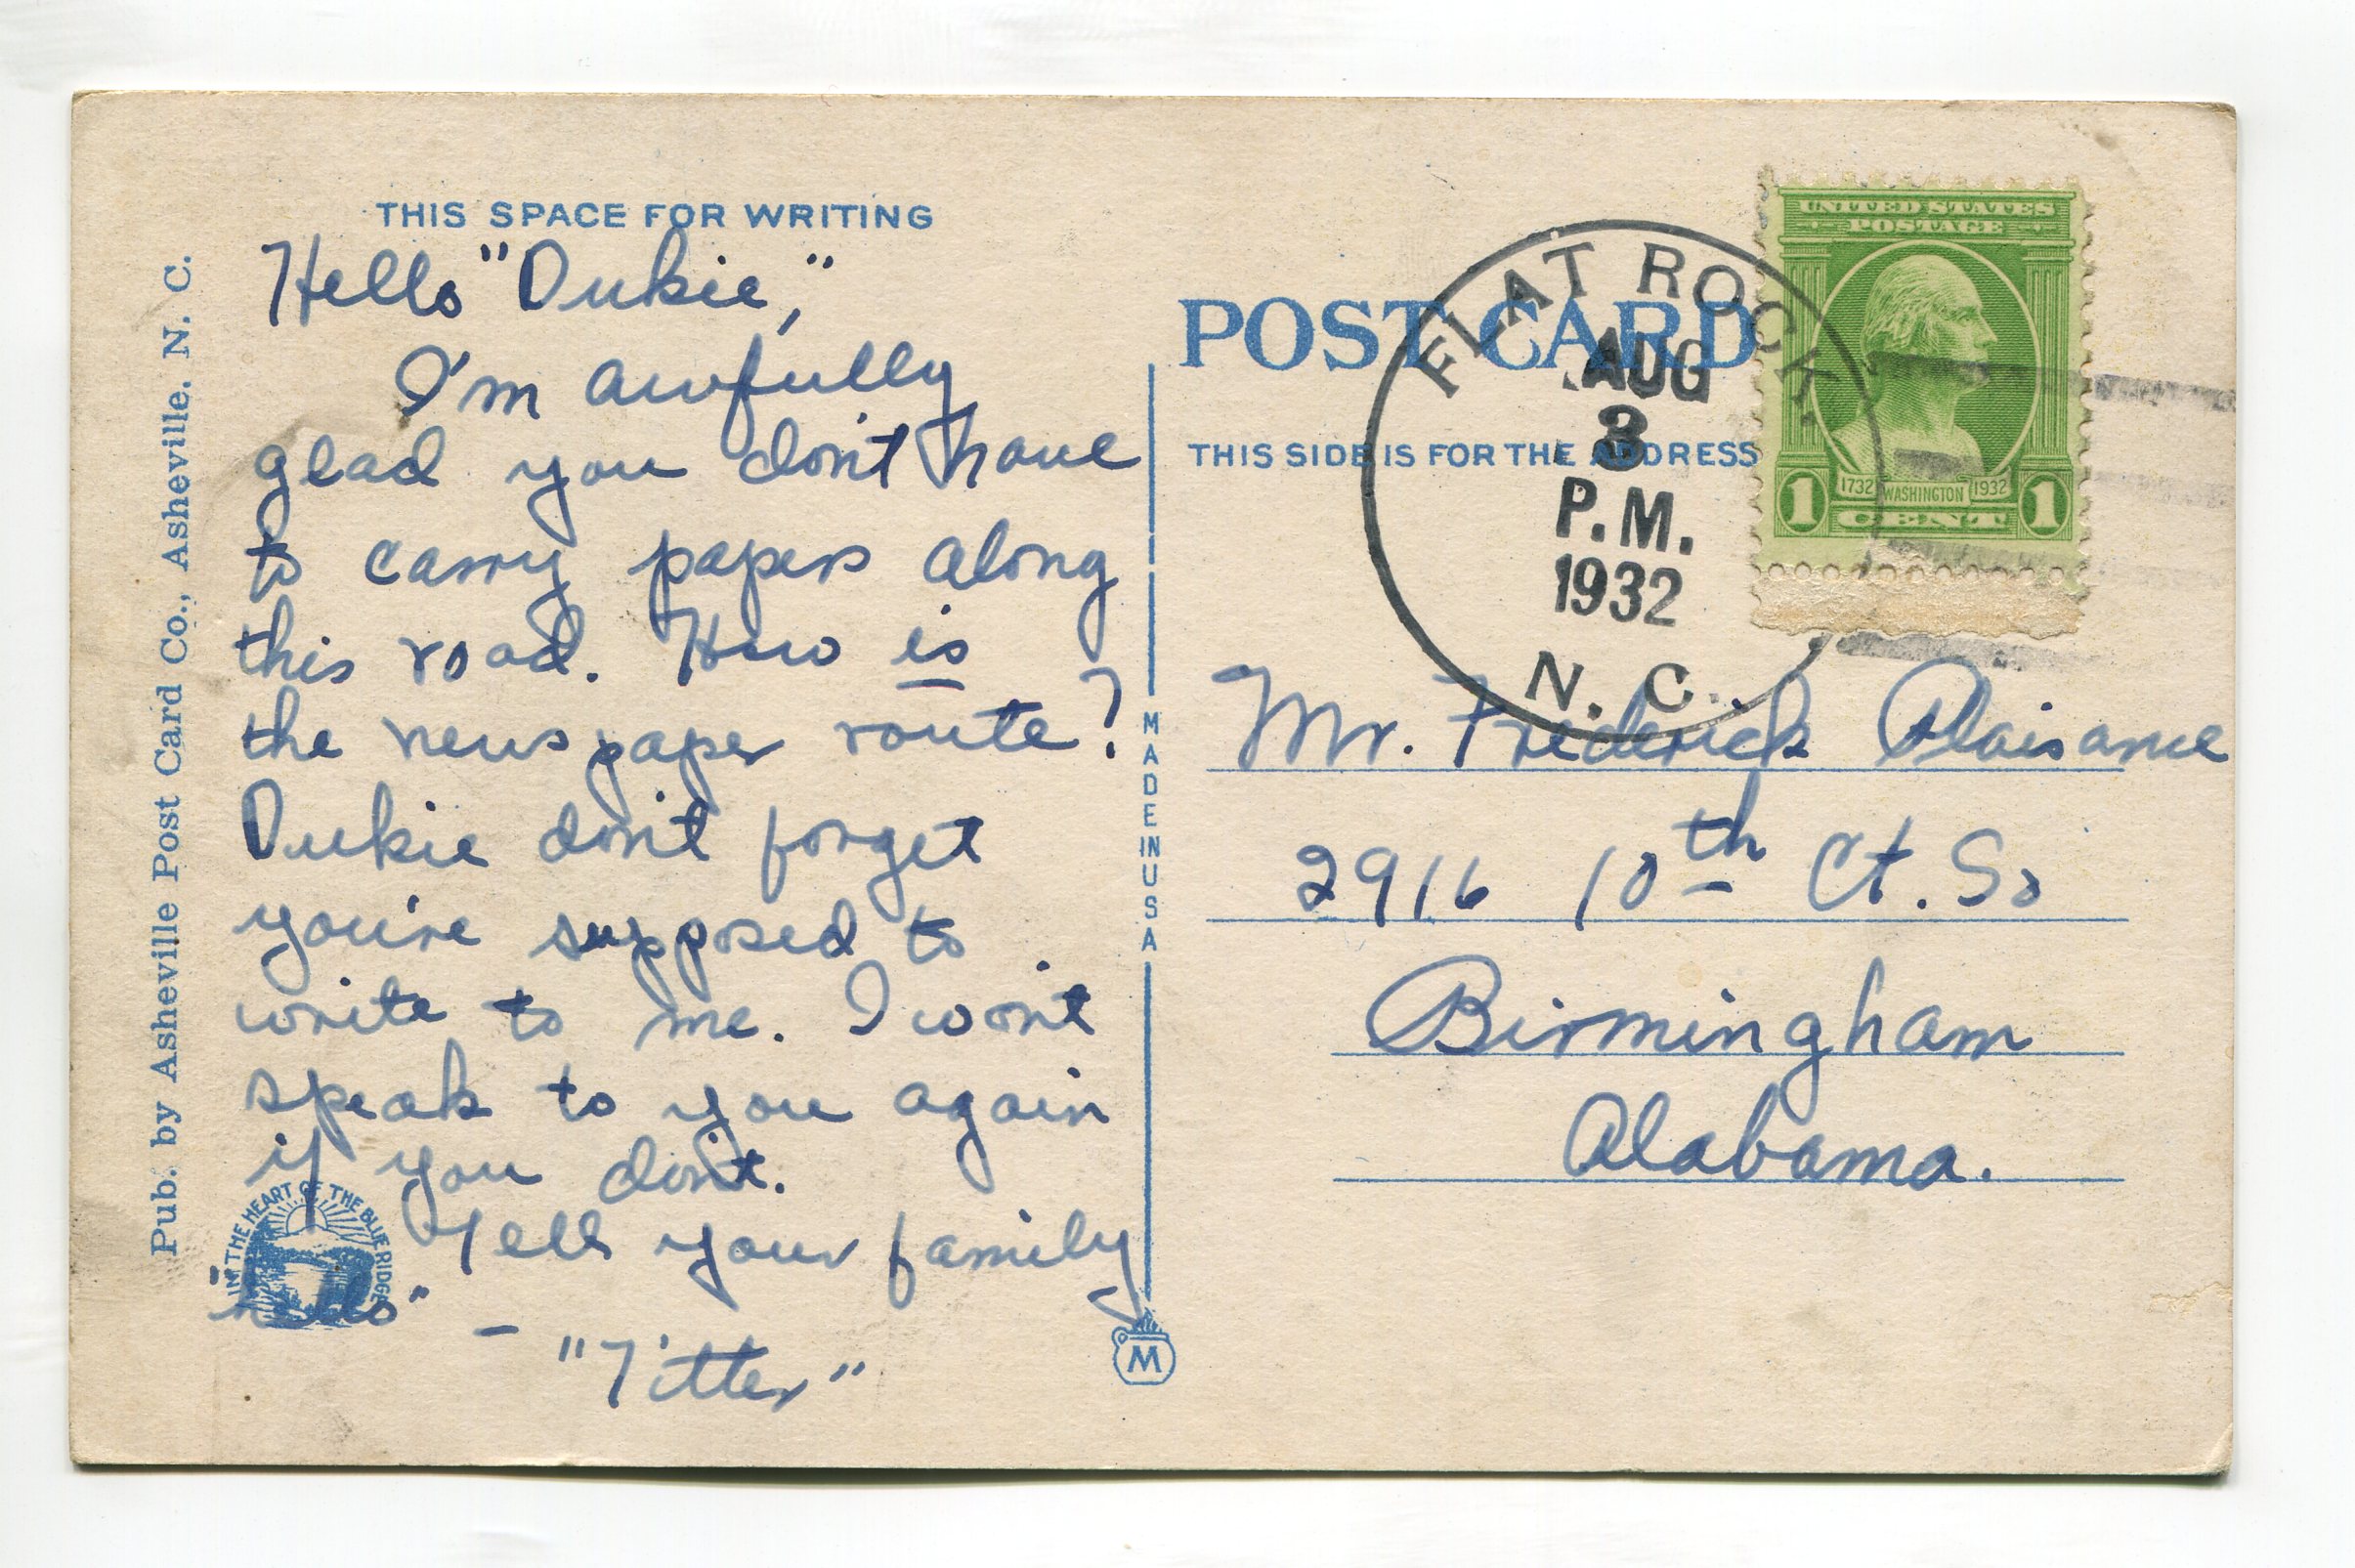 THIS SPACE FOR WRITING
Hello "Dukie,"
I'm awfully
glad you don't have
to carry papers along
this road. How is
the newspaper route?
Dukie don't forget
you're supposed to
write to me. I won't
speak to you again
if you don't.
Tell your family
"hello" –
"Titter"
Pub. by Asheville Post Card Co., Asheville, N. C.
IN THE HEART OF THE BLUE RIDGE
MADE IN U S A
M
POST CARD
THIS SIDE IS FOR THE ADDRESS
FLAT ROCK.
AUG
3
P.M.
1932
N. C.
UNITED STATES
POSTAGE
1732 WASHINGTON 1932
1 CENT 1
Mr. Frederick Plaisance
2916 10th Ct. So
Birmingham
Alabama.